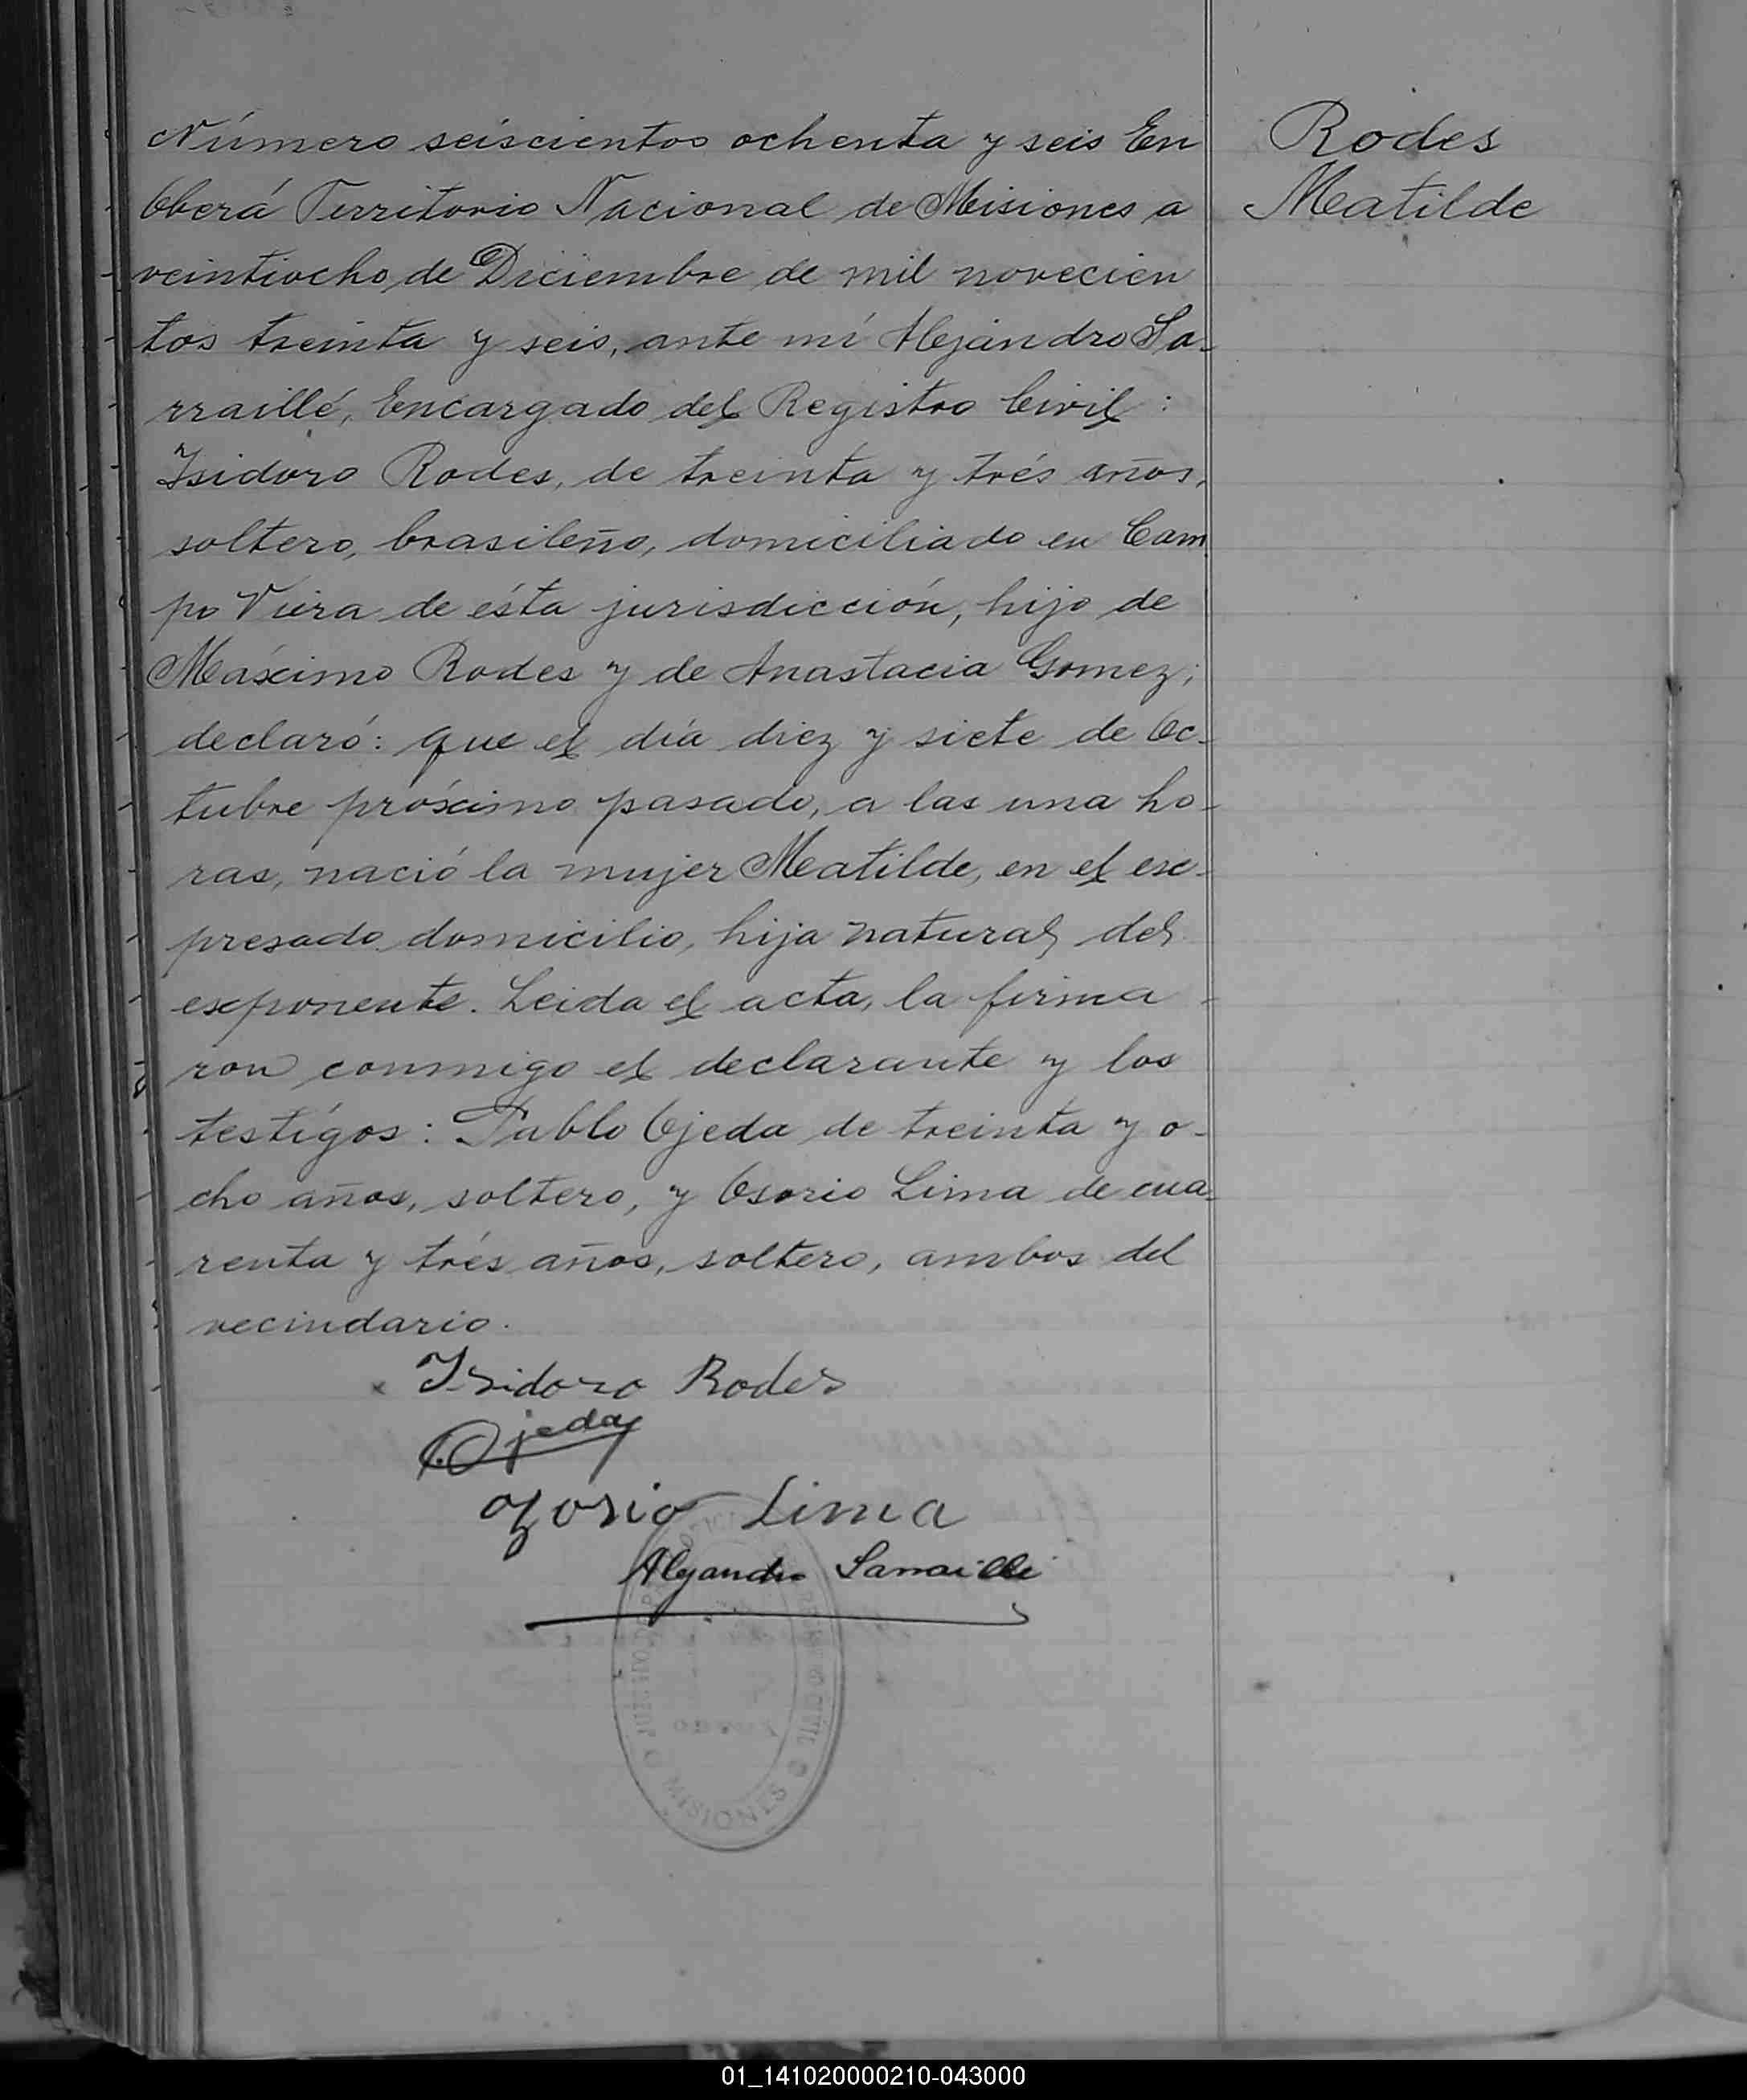 Número seiscientos ochenta y seis En
Oberá Territorio Nacional de Misiones a
veintiocho de Diciembre de mil novecien
tos treinta y seis, ante mí Alejandro Sa-
rraillé, Encargado del Registro Civil :
Isidoro Rodes, de treinta y trés años,
soltero, brasileño, domiciliado en Cam
po Viera de ésta jurisdicción, hijo de
Máximo Rodes y de Anastacia Gomez;
declaró: que el día diez y siete de Oc-
tubre próximo pasado, a las una ho-
ras, nació la mujer Matilde, en el ex-
presado domicilio, hija natural del
exponente. Leida el acta, la firma-
ron conmigo el declarante y los
testígos: Pablo Ojeda de treinta y o-
cho años, soltero, y Osorio Lima de cua-
renta y trés años, soltero, ambos del
vecindario.
Isidoro Rodes
Ojeda
ozorio Lima
Alejandro Sarraillé
REGISTRO CIVIL
MISIONES
Rodes
Matilde
01_141020000210-043000